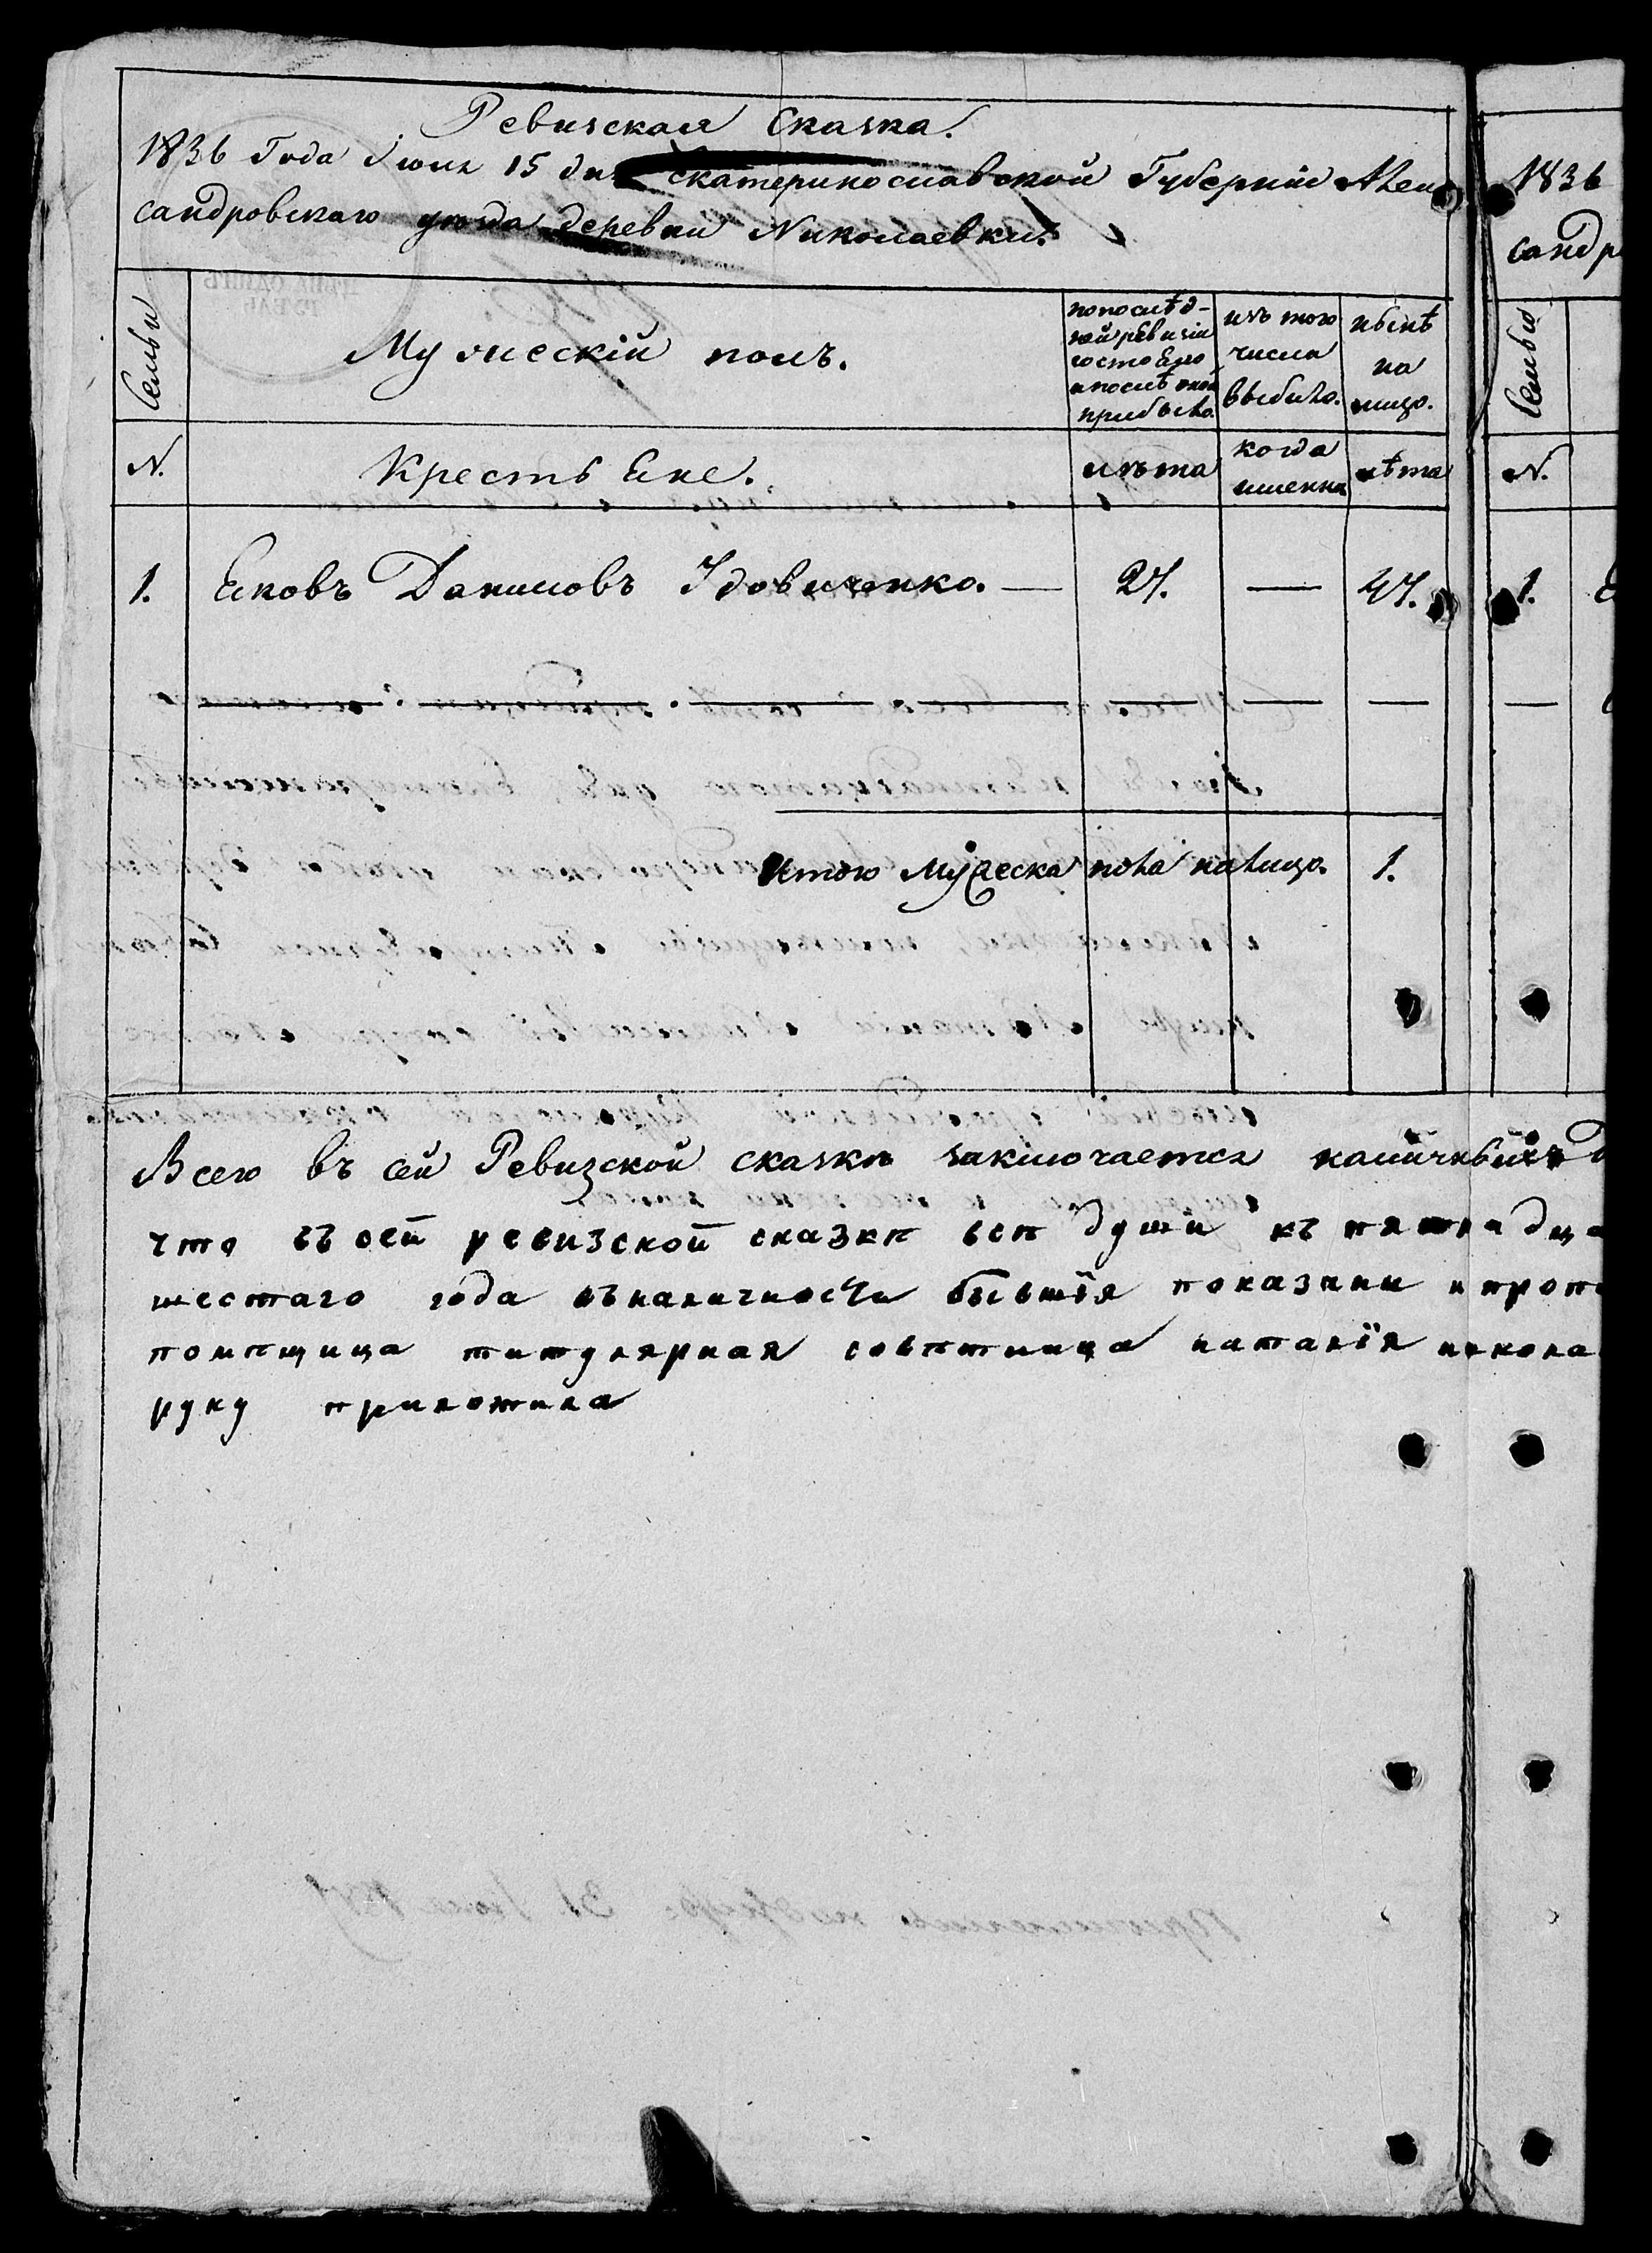 Ревизская Сказка.
1836 Года Июня 15 дня Екатеринославской Губернии Алек
сандровскаго уезда деревни Николаевки.
Семьи
Мужескій полъ.
по послѣд-
ней ревизіи
состояло
и послѣ оной
прибыло.
изъ того
числа
выбыло.
нынѣ
на
лицо.
N.
Крестьяне.
лѣта
когда
именно
лѣта
1. Яковъ Даниловъ Удовиченко. — 27. — 47.
Итого Мужеска пола налицо. 1.
Всего въ сей Ревизской сказкѣ заключается наличныхъ
что въ сей ревизской сказкѣ всѣ души къ пятнадца
шестаго года въ наличности бывшія показаны и проп
помѣщица титулярная совѣтница наталія никола
руку приложила
1836
сандр
Семью
N.
1.